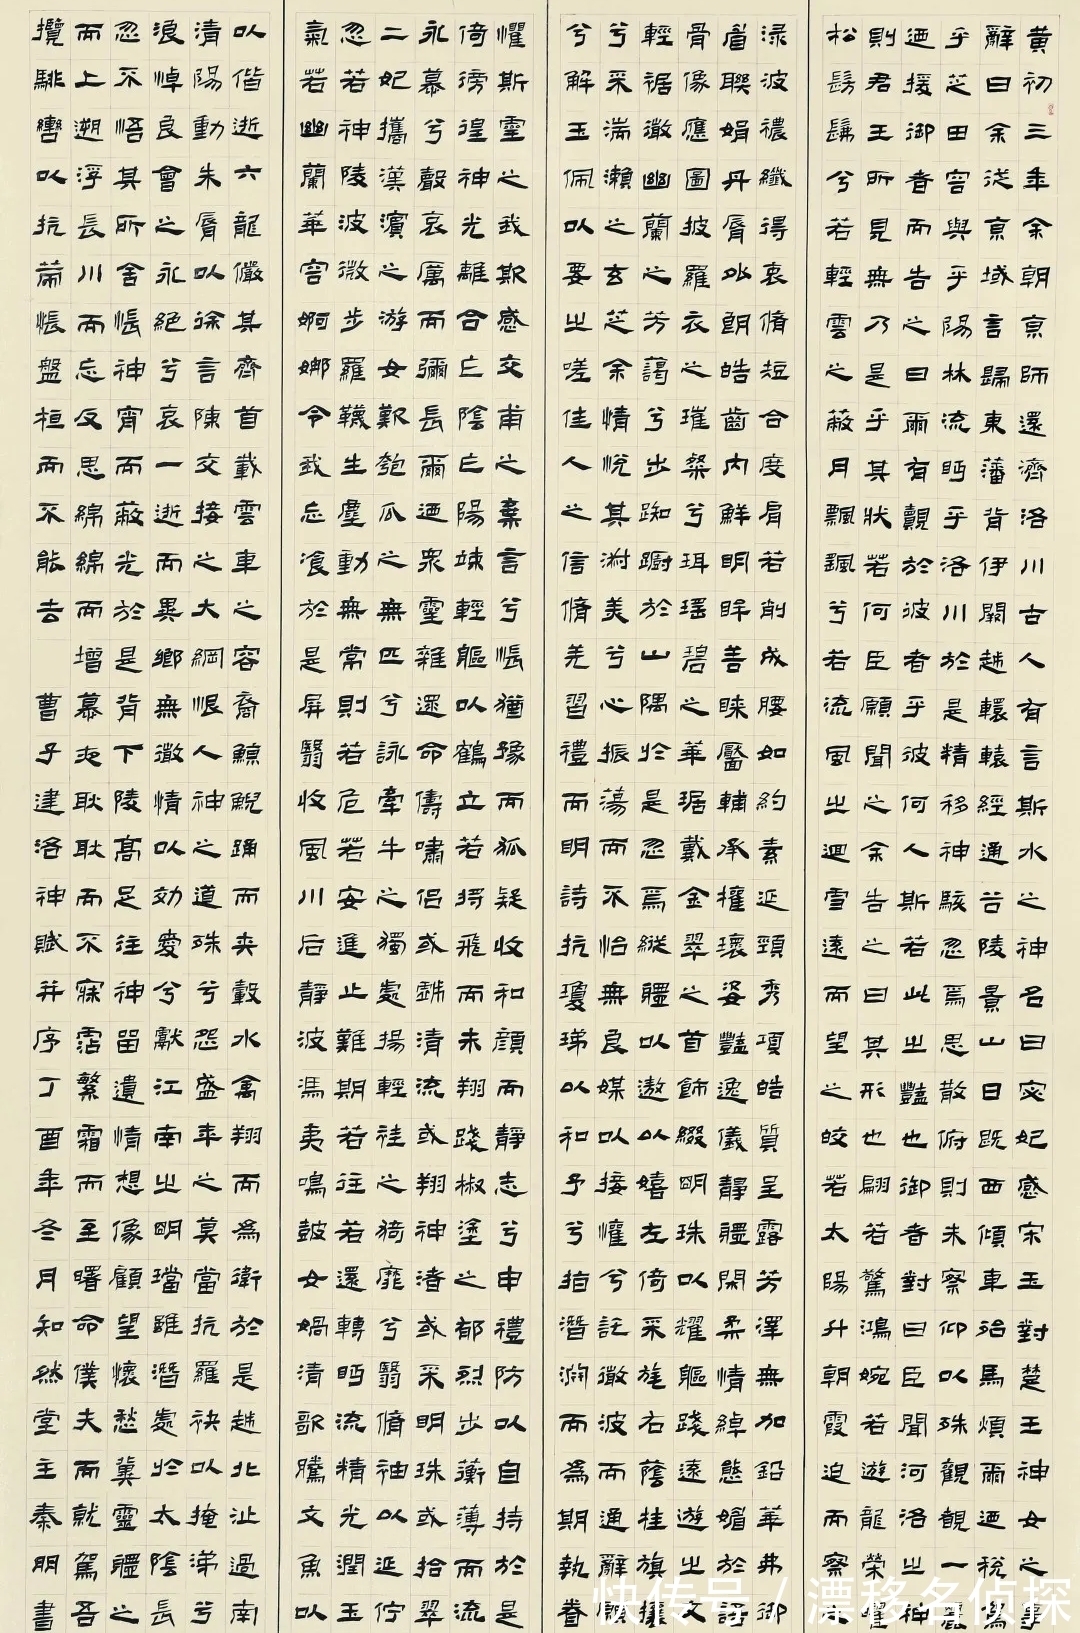 黄初三年余朝京師還濟洛川古人有言斯水之神名曰宓妃感宋玉對楚王神女之事
辭曰余從京域言歸東藩背伊闕越轘轅經通谷陵景山日既西傾車殆馬煩爾迺稅駕
乎芝田容與乎陽林流眄乎洛川於是精移神駭忽焉思散俯則未察仰以殊觀覩一麗
迺援御者而告之曰爾有覿於彼者乎彼何人斯若此之豔也御者對曰臣聞河洛之神
則君王所見無乃是乎其狀若何臣願聞之余告之曰其形也翩若驚鴻婉若遊龍榮曜
松髣髴兮若輕雲之蔽月飄颻兮若流風之迴雪遠而望之皎若太陽升朝霞迫而察
渌波襛纖得衷脩短合度肩若削成腰如約素延頸秀項皓質呈露芳澤無加鉛華弗御
眉聯娟丹脣外朗皓齒內鮮明眸善睞靨輔承權瓌姿豔逸儀靜體閑柔情綽態媚於語
骨像應圖披羅衣之璀粲兮珥瑶碧之華琚戴金翠之首飾綴明珠以耀軀踐遠遊之文
輕裾微幽蘭之芳藹兮步踟躕於山隅於是忽焉縱體以遨以嬉左倚采旄右蔭桂旗攘
兮采湍瀨之玄芝余情悅其淑美兮心振蕩而不怡無良媒以接懽兮託微波而通辭願
兮解玉佩以要之嗟佳人之信脩羌習禮而明詩抗瓊珶以和予兮指潛淵而為期執眷
懼斯靈之我欺感交甫之棄言兮悵猶豫而狐疑收和顏而靜志兮申禮防以自持於是
倚徬徨神光離合乍陰乍陽竦輕軀以鶴立若將飛而未翔踐椒塗之郁烈步蘅薄而流
永慕兮聲哀厲而彌長爾迺眾靈雜遝命儔嘯侶或戲清流或翔神渚或采明珠或拾翠
二妃攜漢濱之游女歎匏瓜之無匹兮詠牽牛之獨處揚輕袿之猗靡兮翳脩袖以延佇
忽若神陵波微步羅韈生塵動無常則若危若安進止難期若往若還轉眄流精光潤玉
氣若幽蘭華容婀娜令我忘飡於是屏翳收風川后靜波馮夷鳴鼓女媧清歌騰文魚以
以偕逝六龍儼其齊首載雲車之容裔鯨鯢踊而夾轂水禽翔而為衛於是越北沚過南
清陽動朱脣以徐言陳交接之大綱恨人神之道殊兮怨盛年之莫當抗羅袂以掩涕兮
浪悼良會之永絕兮哀一逝而異鄉無微情以効愛兮獻江南之明璫雖潛處於太陰長
忽不悟其所舍悵神宵而蔽光於是背下陵高足往神留遺情想像顧望懷愁冀靈體之
而上遡浮長川而忘反思綿綿而增慕夜耿耿而不寐霑繁霜而至曙命僕夫而就駕吾
攬騑轡以抗策悵盤桓而不能去 曹子建洛神賦并序丁酉年冬月知然堂主秦朋書
快传号 / 漂移名侦探